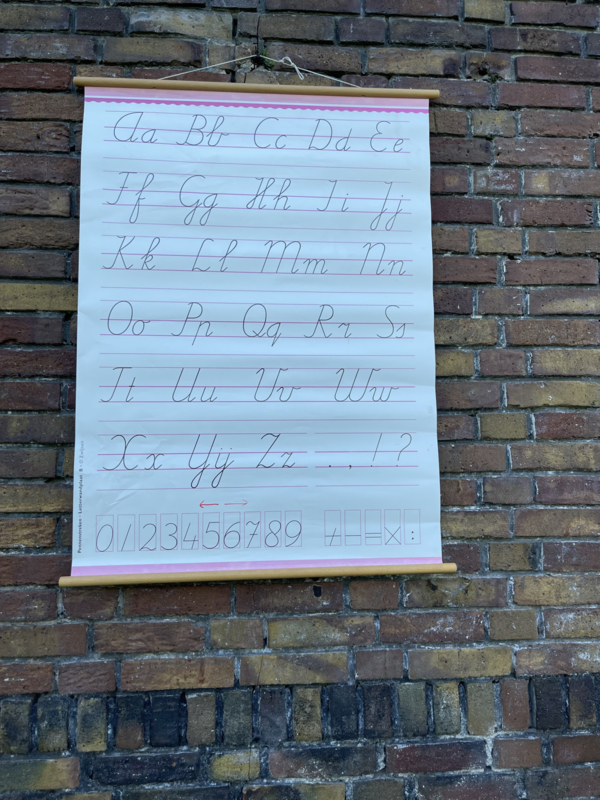 Aa Bb Cc Dd Ee
Ff Gg Hh Ii Jj
Kk Ll Mm Nn
Oo Pp Qq Rr Ss
Tt Uu Vv Ww
Xx IJij Zz . , ! ?
0 1 2 3 4 5 6 7 8 9 + - = x :